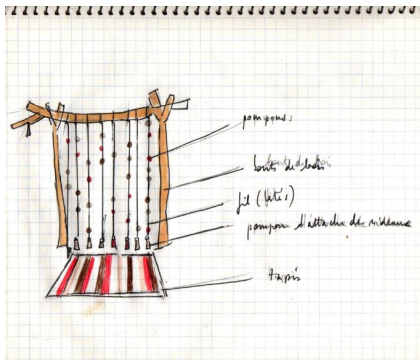 pompons
bouts de bois
fil (
pompons d'attache de rideaux
tapis